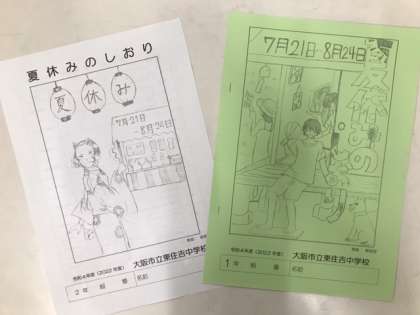 夏休みのしおり
夏
休
み
7月21日
~8月24日
令和4年度(2022年度)
大阪市立東住吉中学校
2年 組 番 名前
7月21日~8月24日
夏休みの
令和4年度(2022年度)
大阪市立東住吉中学校
1年 組 番 名前